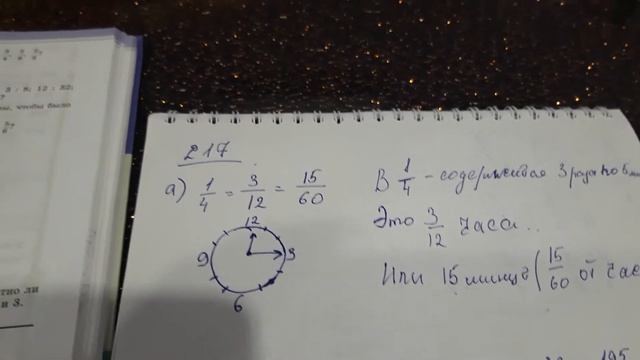 3 : 8; 12 : 32;
чтобы было
ли
и 3.
217
а) 1/4 = 3/12 = 15/60
В 1/4 - содержится 3 раза по 5
Это 3/12 часа..
12
9 3
6
Или 15 минут (15/60 от час
195